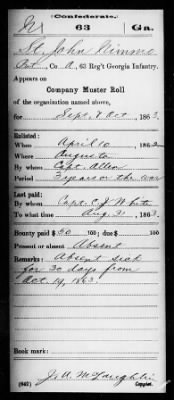 (Confederate.)
63 Ga.
St. John Dimmo
Pvt, Co. A, 63 Reg't Georgia Infantry.
Appears on
Company Muster Roll
of the organization named above,
for Sept & Oct, 1863.
Enlisted:
When April 10, 1862
Where Augusta
By whom Capt. Allen
Period 3 years or the war
Last paid:
By whom Capt. C. J. White
To what time Aug 31, 1863.
Bounty paid $ 50 100; due $ 100
Present or absent Absent
Remarks: Absent sick
for 30 days from
Oct 19, 1863.
Book mark:
J. A. McLaughlin
(642) Copyist.